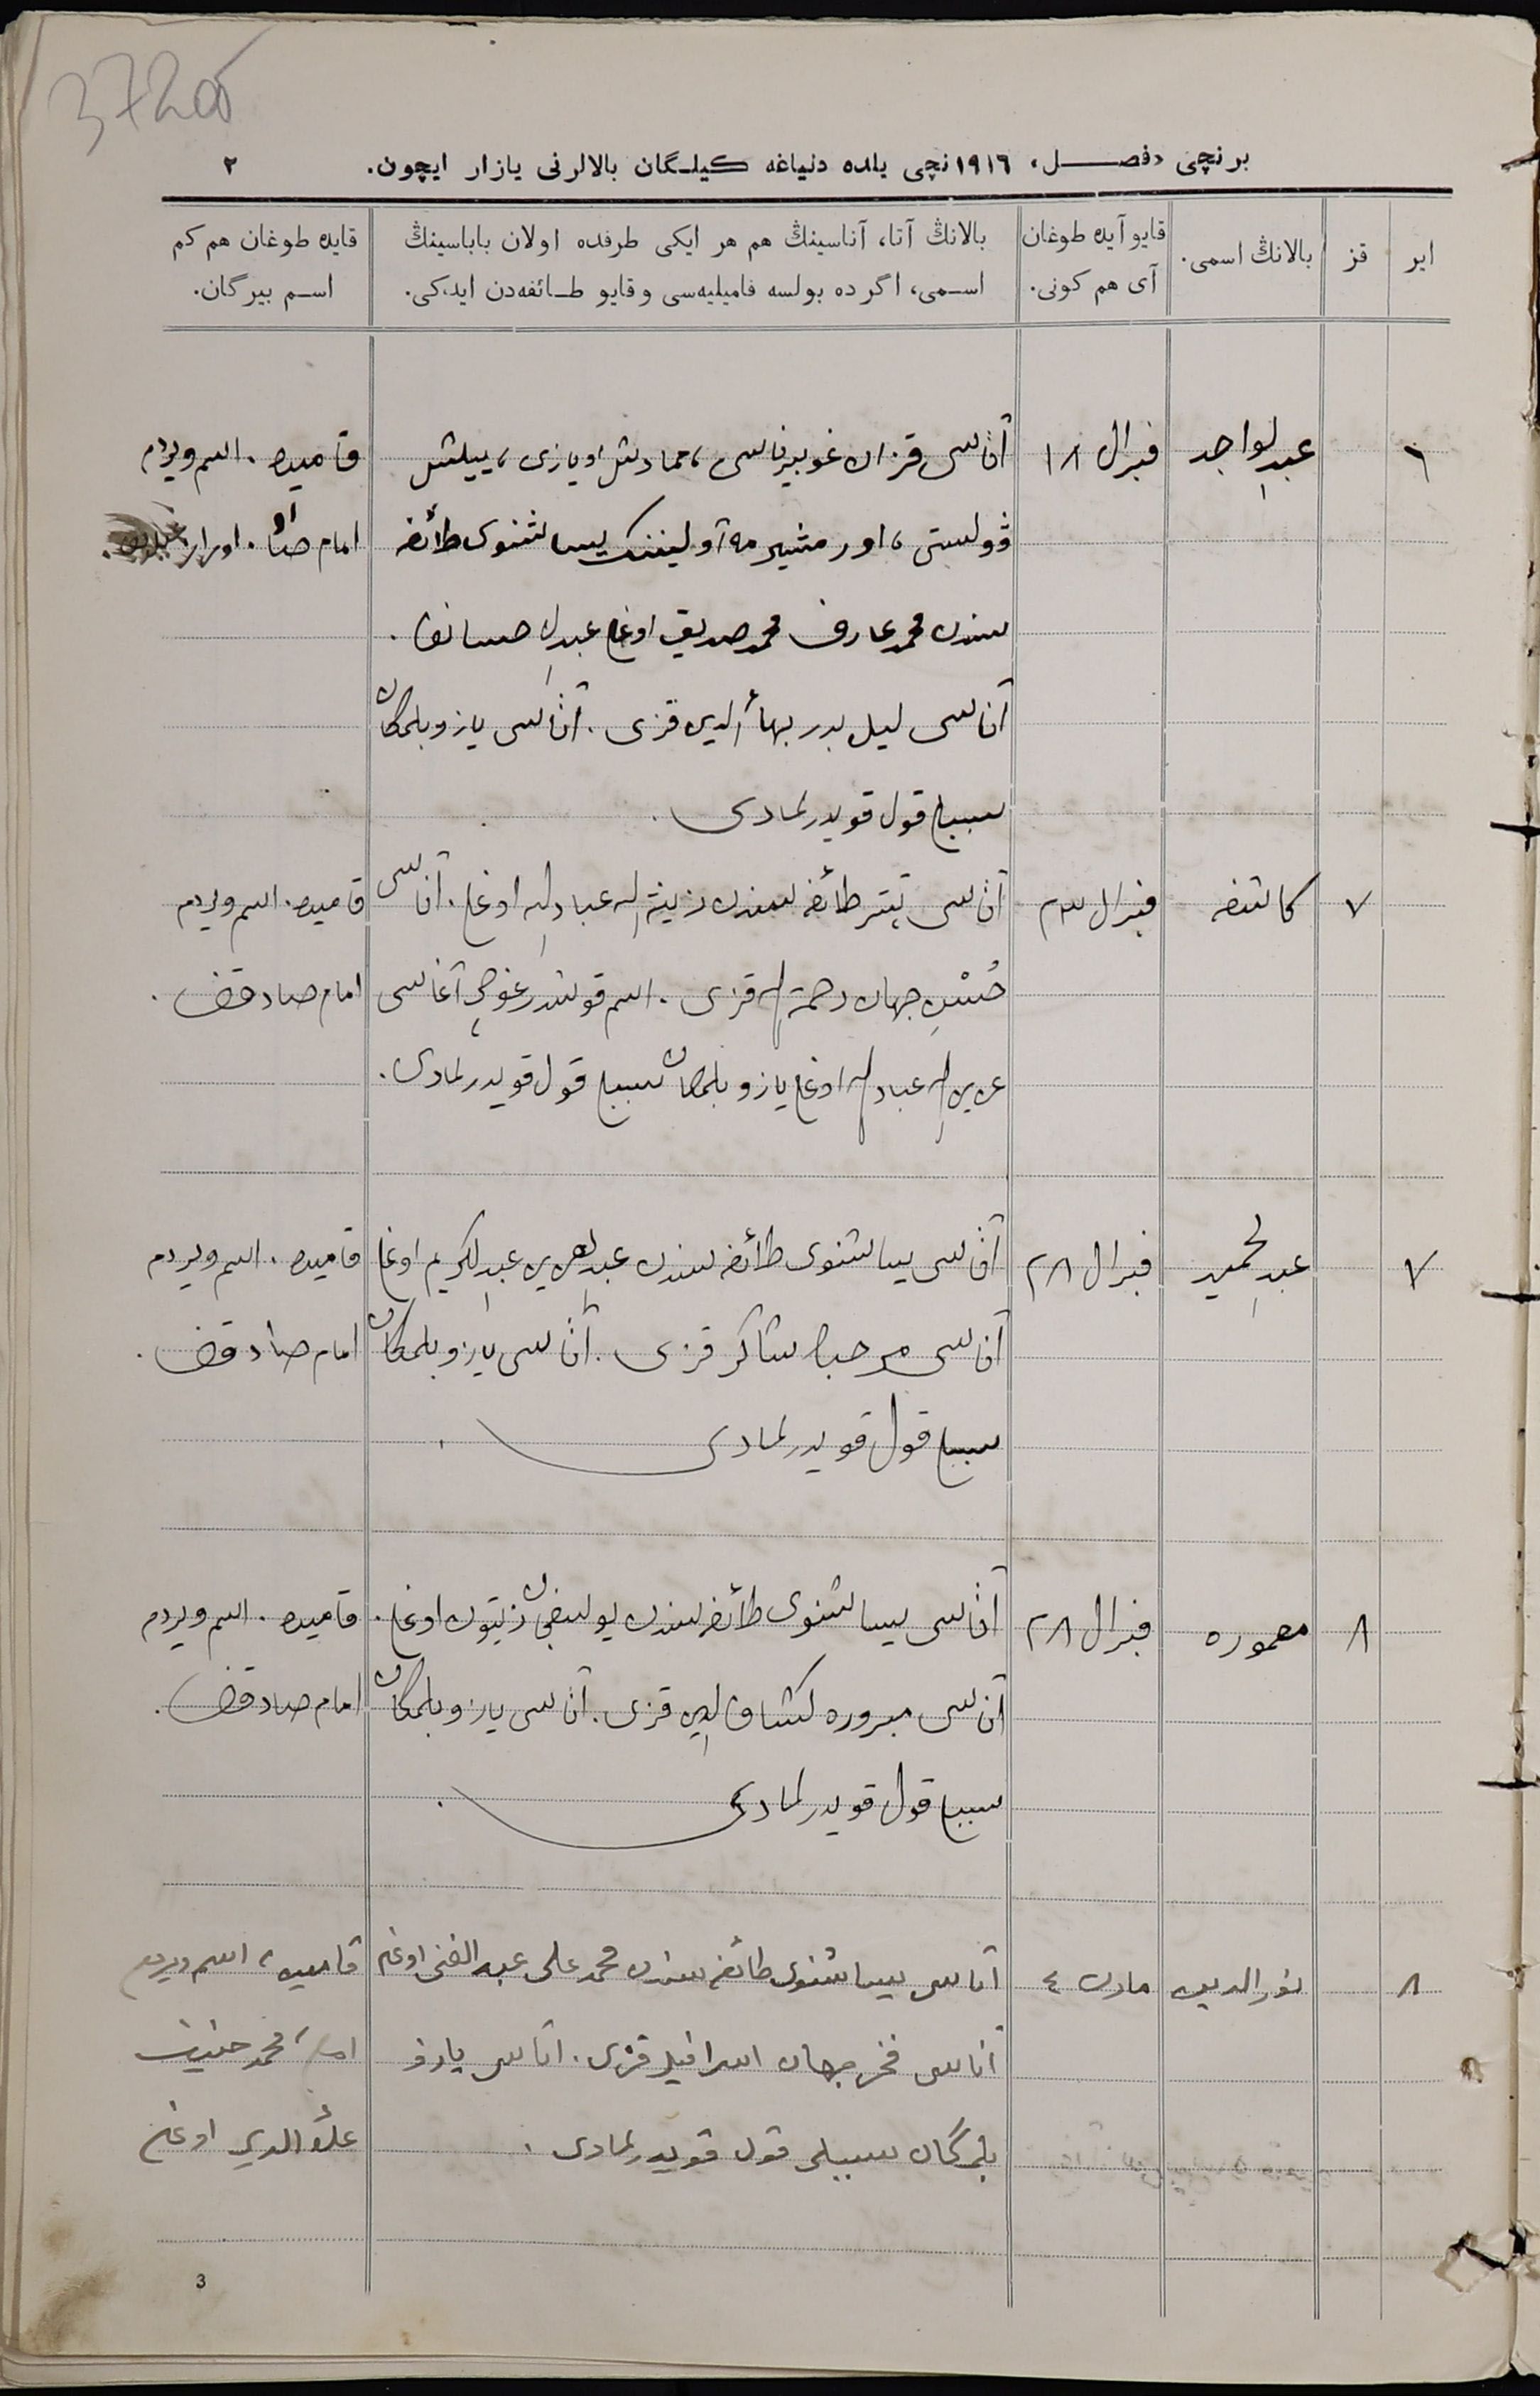 372об
برنچی «فصل» ١٩١٦نچی یلده دنیاغه کیلگان بالالرنی یازار ایچون. ٢
ایر
قز
بالانڭ اسمی.
قایو آیده طوغان
آی هم کونی.
بالانڭ آتا، آناسینڭ هم هر ایکی طرفده اولان باباسینڭ
اسمی، اگرده بولسه فامیلیه‌سی و قایو طائفه‌دن ایدکی.
قایده طوغان هم کم
اسم بیرگان.
٦
عبدالواجد
فبرال ١٨
آتاسی قزان غوبیرناسی، مامادش اویازی،
وولستی، اورمشیرمه آولیننک یساشنوی طائفه
سندن محمد عارف محمد صدیق اوغلی
آناسی لیل بدر بهاءالدین قزی. آتاسی یازو بلمکان
سببلی قول قویدرلمادی.
قامیده. اسم ویردم
امام
٧
کاشفه
فبرال ٢٣
آتاسی تپتر طائفه سندن زینة الله عباد الله اوغلی. آناسی
حسن جهان رحمة الله قزی. اسم قوشدرغوچی آغاسی
عباد الله اوغلی یازو بلمکان سببلی قول قویدرلمادی.
قامیده. اسم ویردم
امام صادقف.
٧
عبدالحمید
فبرال ٢٨
آتاسی یساشنوی طائفه سندن عبدالعزیز عبدالکریم اوغلی
آناسی مرحبا شاکر قزی. آتاسی یازو بلمکان
سببلی قول قویدرلمادی.
قامیده. اسم ویردم
امام صادقف.
٨
معموره
فبرال ٢٨
آتاسی یساشنوی طائفه سندن زیتون اوغلی.
آناسی مبروره کشاف الدین قزی. آتاسی یازو بلمکان
سببلی قول قویدرلمادی.
قامیده. اسم ویردم
امام صادقف.
٨
نورالدین
مارت ٤
آتاسی یساشنوی طائفه سندن محمد علی عبدالغنی اوغلی
آناسی فخر جهان اسرافیل قزی. اتاسی یازو
بلمکان سببلی قول قویدرلمادی.
قامیده، اسم ویردم
امام محمد حنیف
علاءالدین اوغلی
3